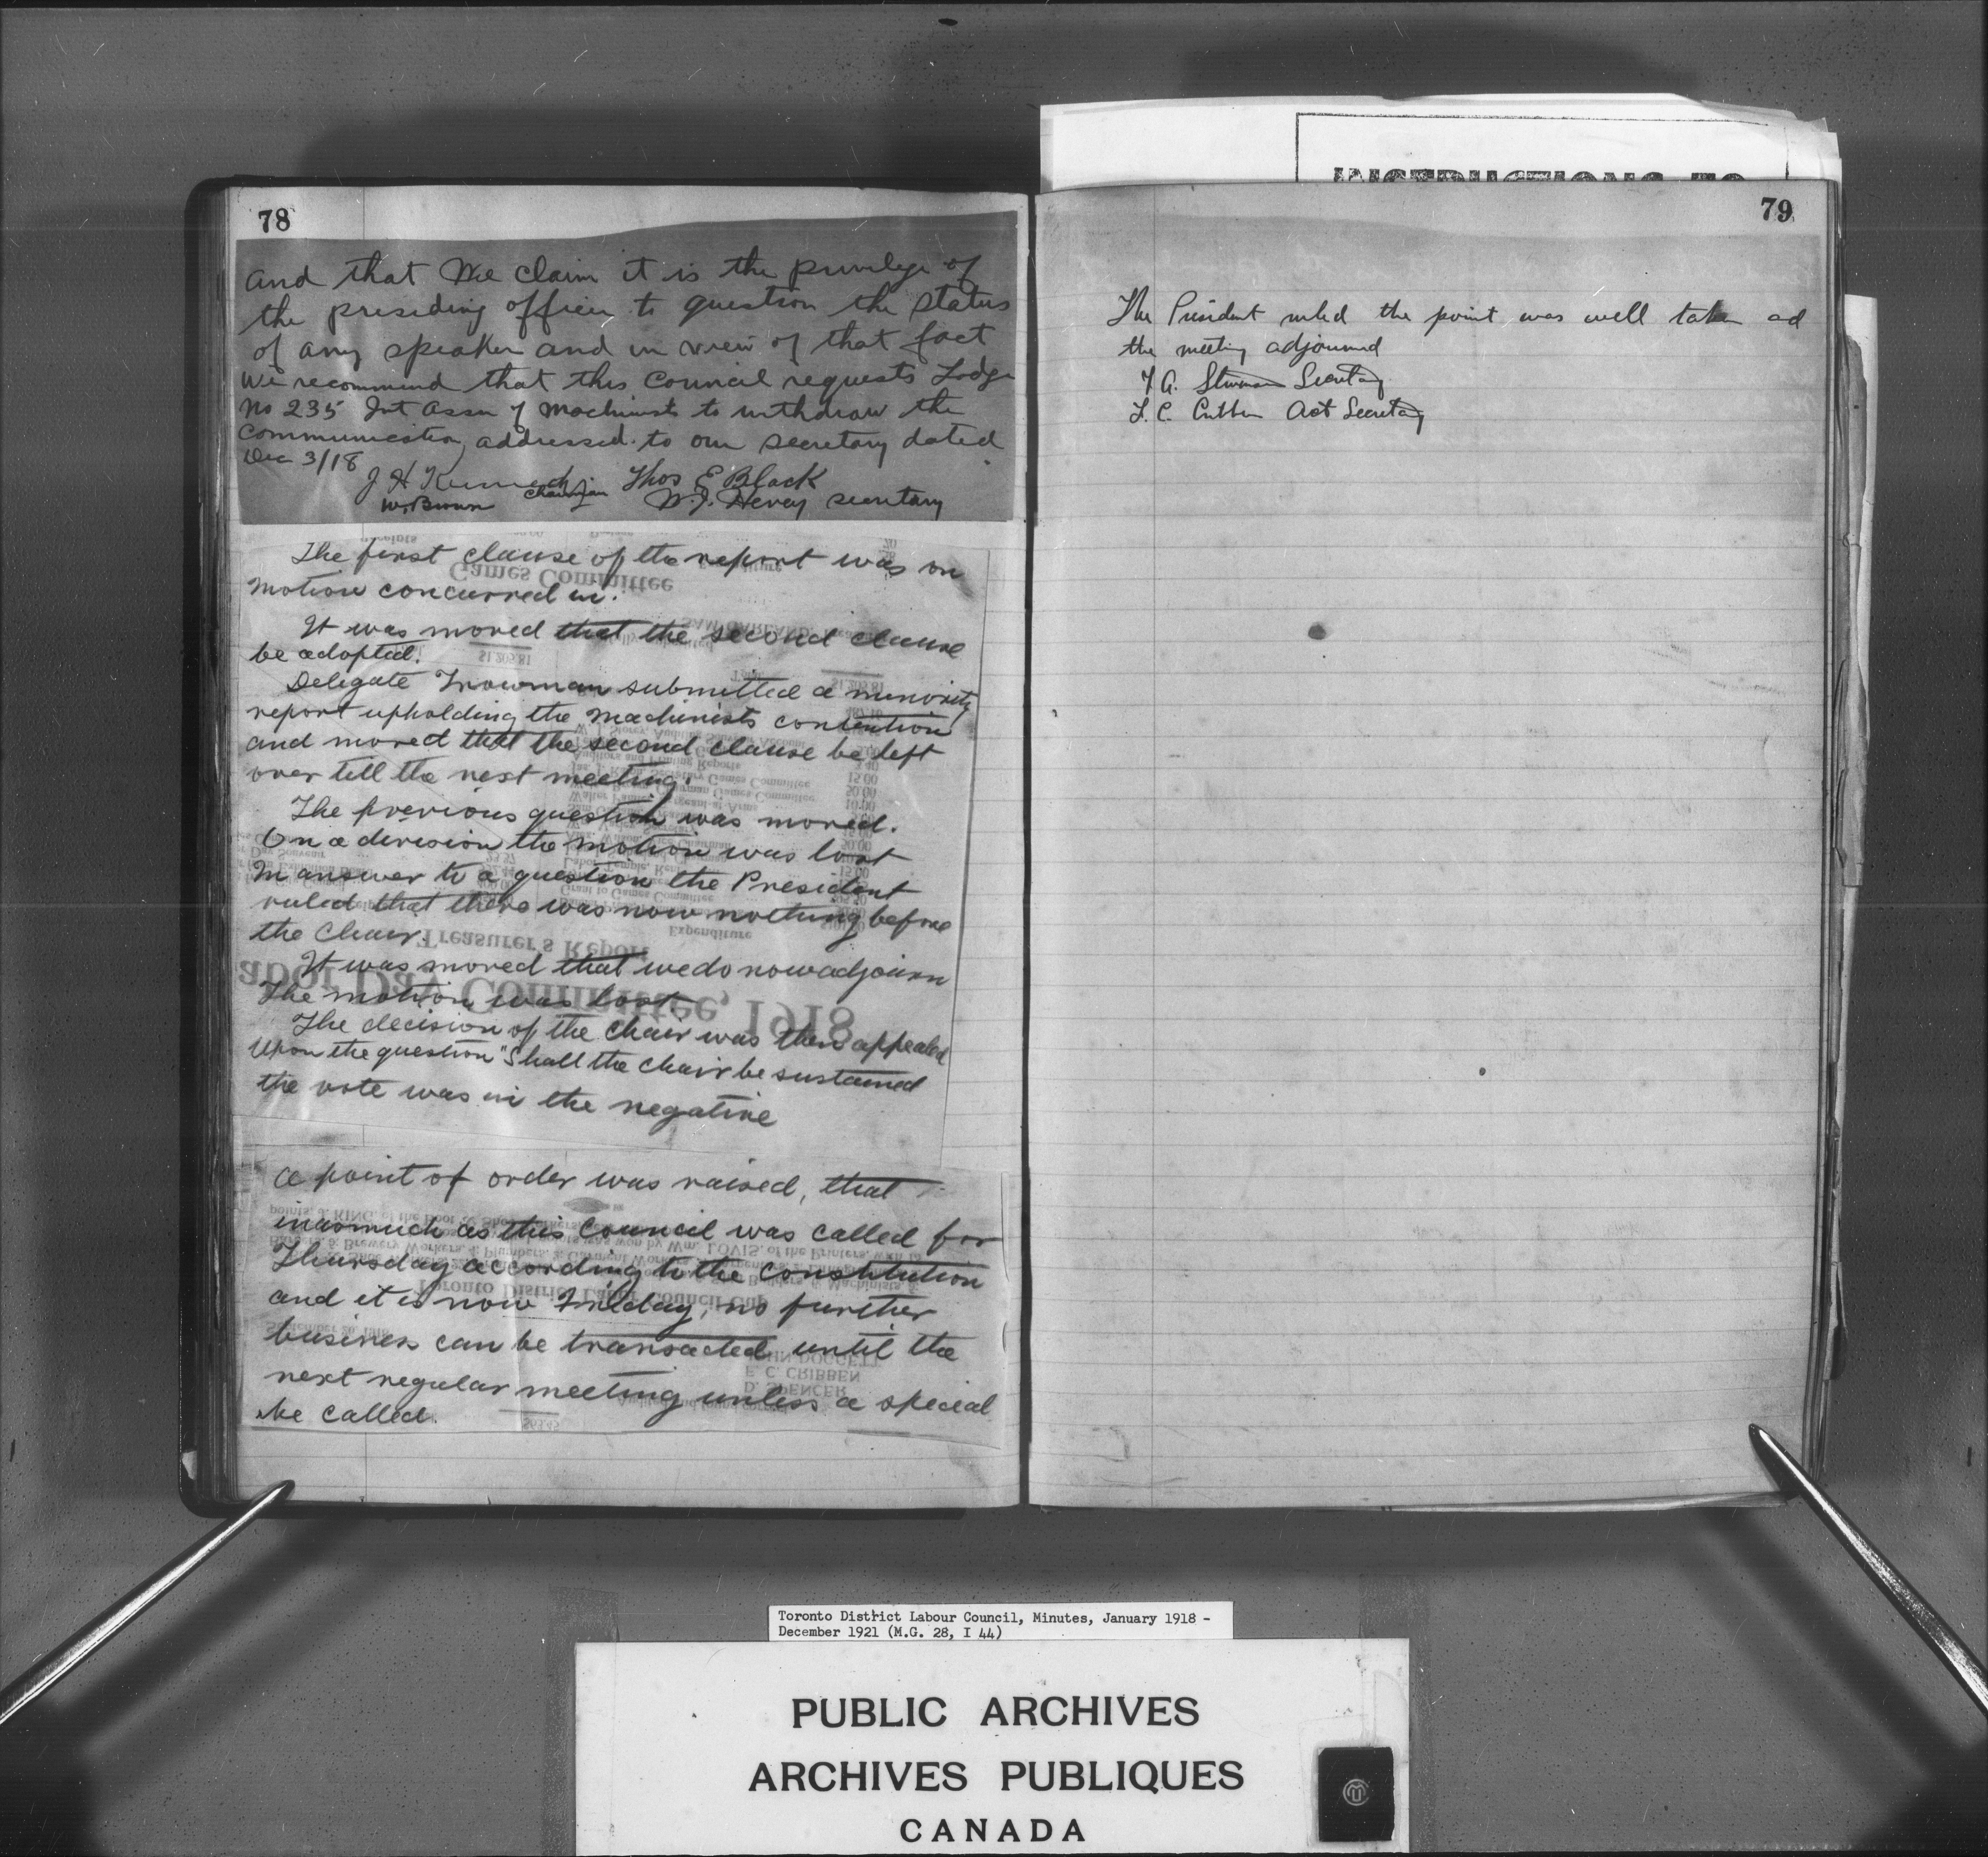 78
and that We claim it is the privilege of
the presiding officer to question the status
of any speaker and in view of that fact
We recommend that this Council requests Lodge
No 235 Int Assn of Machinists to withdraw the
communication addressed to our secretary dated
Dec 3/18
J H Kennedy Chairman Thos E Black
W. Brown W. J. Hevey secretary
The first clause of the report was on
motion concurred in.
It was moved that the second clause
be adopted.
Delegate submitted a minority
report upholding the machinists contention
and moved that the second clause be left
over till the next meeting.
The previous question was moved.
On a division the motion was lost
In answer to a question the President
ruled that there was now nothing before
the chair.
It was moved that we do now adjourn
The motion was lost
The decision of the chair was then appealed
Upon the question "Shall the chair be sustained
the vote was in the negative
A point of order was raised, that
inasmuch as this Council was called for
Thursday according to the constitution
and it is now Friday, no further
business can be transacted until the
next regular meeting unless a special
be called.
Games Committee
Treasurer's Report
abor Day Committee, 1918
Expenditure
Toronto District Labor Council Cup
E. C. CRIBBEN
D. SPENCER
INSTRUCTIONS TO
79
The President ruled the point was well taken ad
the meeting adjourned
T. A. Secretary
Act Secretary
Toronto District Labour Council, Minutes, January 1918 -
December 1921 (M.G. 28, I 44)
PUBLIC ARCHIVES
ARCHIVES PUBLIQUES
CANADA